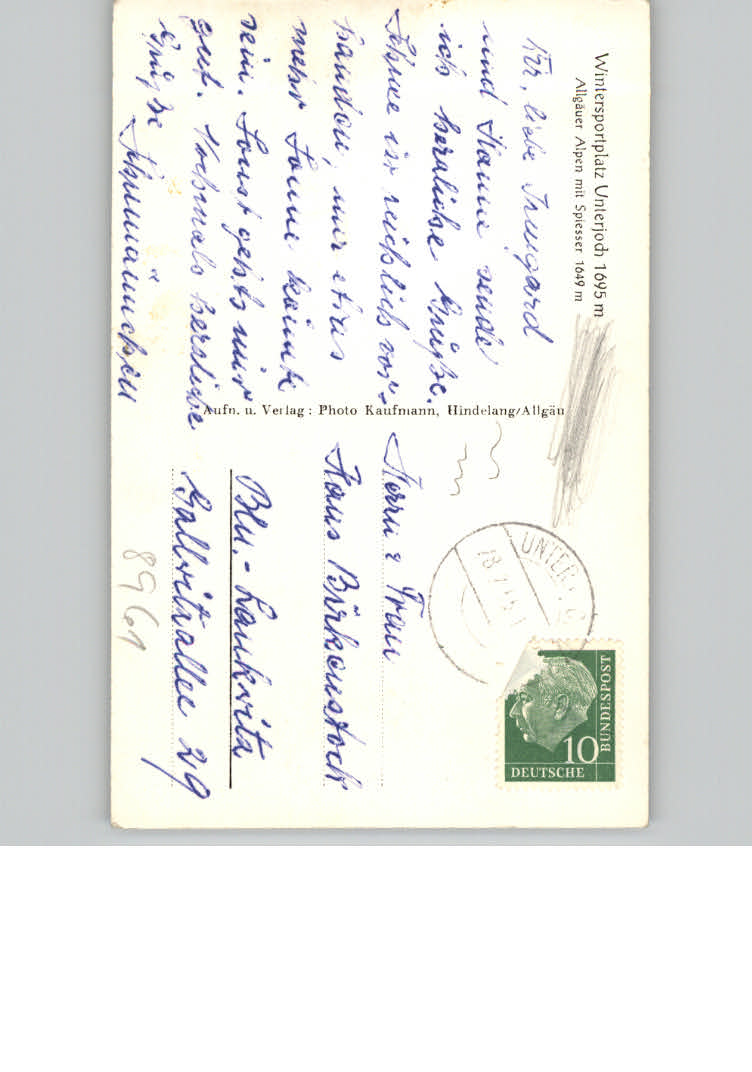 Wintersportplatz Unterjoch 1695 m
Allgäuer Alpen mit Spiesser 1649 m
liebe Irmgard
und Hanne sende
ich herzliche Grüße.
Schnee ist reichlich vor-
handen, nur etwas
mehr Sonne könnte
sein. Sonst geht's mir
gut. Nochmals herzliche
Grüße
Aufn. u. Verlag: Photo Kaufmann, Hindelang/Allgäu
Herrn & Frau
Hans Birkenstock
Bln.-Lankwitz
Gallwitzallee 29
8961
UNTERJ
10
DEUTSCHE
BUNDESPOST